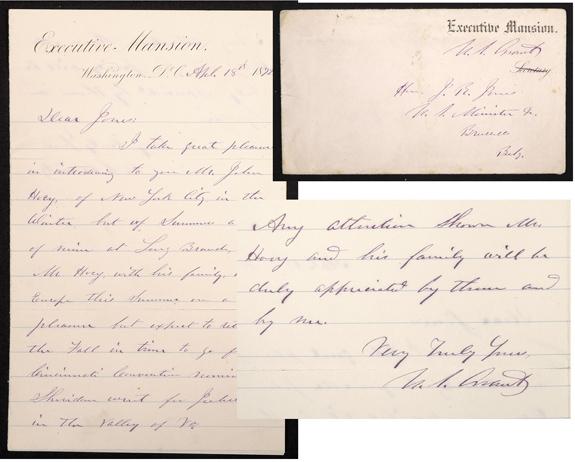 Executive Mansion.
Washington, D.C. Apl. 18th 187
Dear Jones:
I take great pleasure
in introducing to you Mr. John
Hoey, of New York City in the
Winter but of Summer a
of mine at Long Branch,
Mr Hoey, with his family,
Europe this Summer on a
pleasure but expect to
the Fall in time to go
Cincinnati Convention
Sheridan went for
in the Valley of Va
Executive Mansion.
U. S. Grant
Secretary
Hon. J. R. Jones
U. S. Minister &c
Brussels
Belg.
Any attention shown Mr.
Hoey and his family will be
duly appreciated by them and
by me.
Very Truly Yours,
U. S. Grant